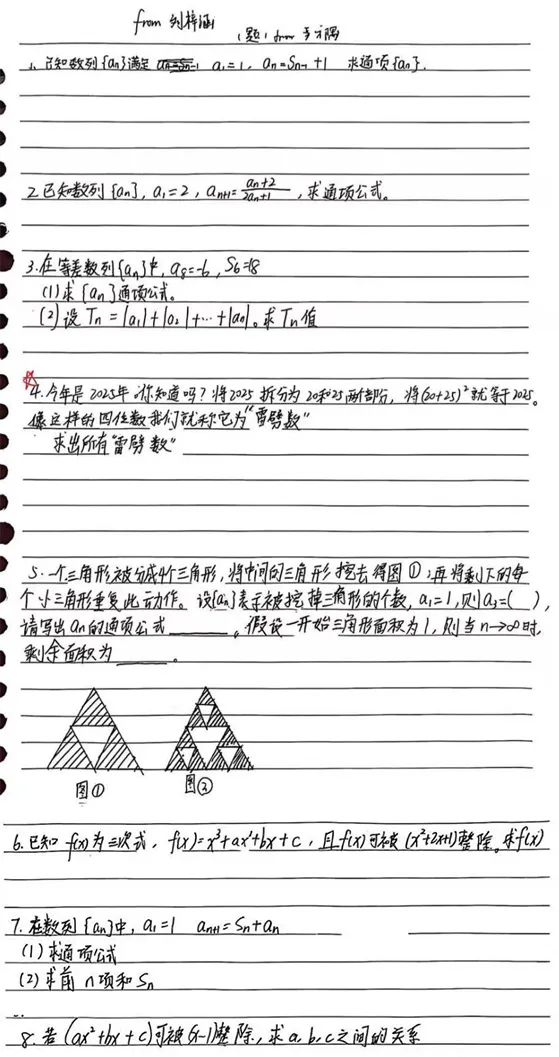 from 刘梓涵
(题) from
1. 已知数列{an}满足 a₁=1, an=Sn-1+1 求通项{an}.
2. 已知数列{an}, a₁=2, an+1=(an+2)/(2an+1), 求通项公式。
3. 在等差数列{an}中, a₈=-6, S₆=18
(1) 求{an}通项公式。
(2) 设Tn=|a₁|+|a₂|+…+|an|。求Tn值
☆
4. 今年是2025年.你知道吗?将2025拆分为20和25两部分,将(20+25)²就等于2025。
像这样的四位数我们就称它为"雷劈数"
求出所有"雷劈数"
5. 一个三角形被分成4个三角形,将中间的三角形挖去得图①;再将剩下的每
个小三角形重复此动作。设{an}表示被挖掉三角形的个数, a₁=1,则a₃=( ),
请写出an的通项公式______。假设一开始三角形面积为1,则当n→∞时,
剩余面积为_____。
图① 图②
6. 已知f(x)为三次式, f(x)=x³+ax²+bx+c, 且f(x)可被(x²+2x+1)整除。求f(x)
7. 在数列{an}中, a₁=1 an+1=Sn+an
(1) 求通项公式
(2) 求前n项和Sn
8. 若(ax²+bx+c)可被(x-1)整除,求a,b,c之间的关系